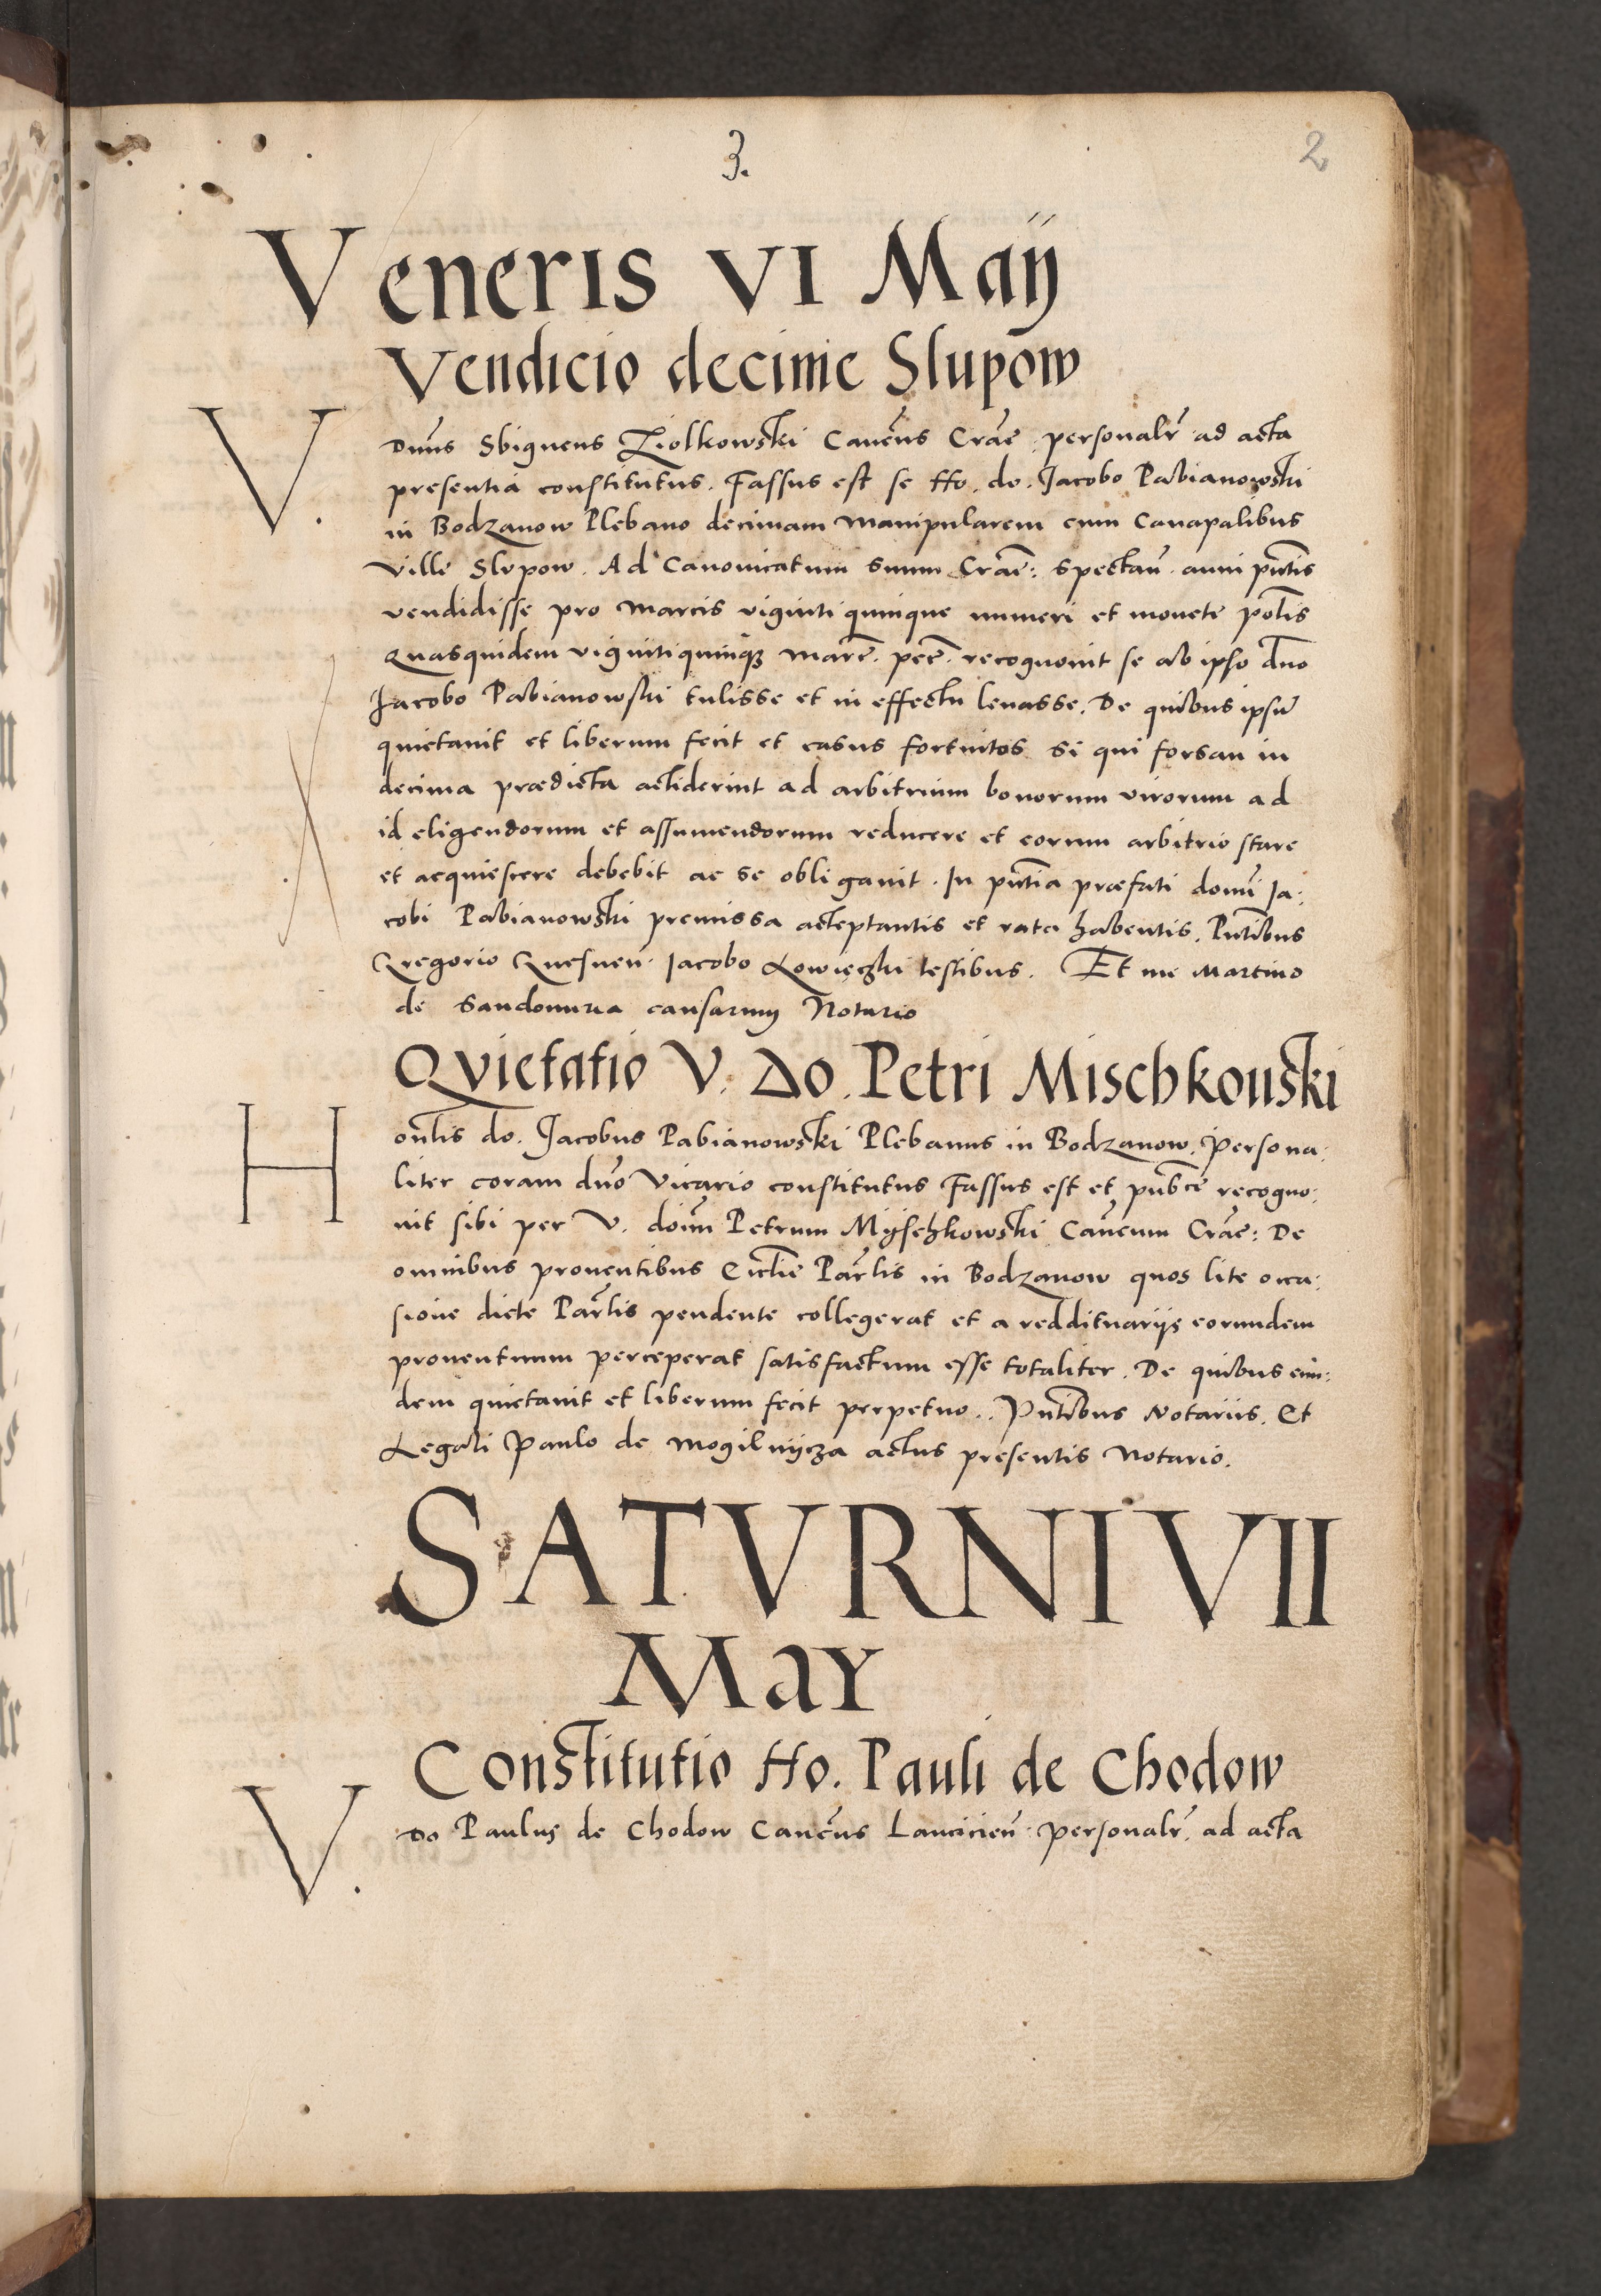 3.
2
Veneris VI Maij
Vendicio decime Slupow
V. Dnus Sbigneus Ziolkowski Canēus Crāe . personalr ad acta
presentia constitutus . Fassus est se Ho . do . Jacobo Pabianowski
in Bodzanow Plebano decimam manipularem cum canapalibus
ville Slvpow . Ad Canonicatum suum Crāē : spectan . anni pntis
vendidisse pro marcis viginti quinque numeri et monete polis
Quasquidem vigintiquinqȝ marc . pec . recognouit se ab ipso dno
Jacobo Pabianowski tulisse et in effectu leuasse . De quibus ipsū
quietauit et liberum fecit et casus fortuitos si qui forsan in
decima prædicta acciderint ad arbitrium bonorum virorum ad
id eligendorum et assumendorum reducere et eorum arbitrio stare
et acquiescere debebit ac se obligauit . In pntia præfati domi Ja:
cobi Pabianowski premissa acceptantis et rata habentis . Pntibus
Gregorio Jacobo testibus . Et me Martino
de Sandomiria causarum Notario
Qvietatio V. Do. Petri Mischkouski
H onlis do . Jacobus Pabianowski Plebanus in Bodzanow . persona:
liter coram dno Vicario constitutus Fassus est et pubce recogno:
uit sibi per V. doim Petrum Mijschkowski Canēum Crāe : De
omnibus prouentibus Ecclie Parlis in Bodzanow quos lite occa:
sione dicte Parlis pendente collegerat et a reddituarijs eorundem
prouentuum perceperat satisfactum esse totaliter . De quibus eun:
dem quietauit et liberum fecit perpetuo .. Pntibus Notariis . Et
Legali Paulo de Mogilnijcza actus presentis Notario .
SATVRNI VII
MaY
Constitutio Ho. Pauli de Chodow
V. Do Paulus de Chodow Canēus Lancicien . personalr . ad acta